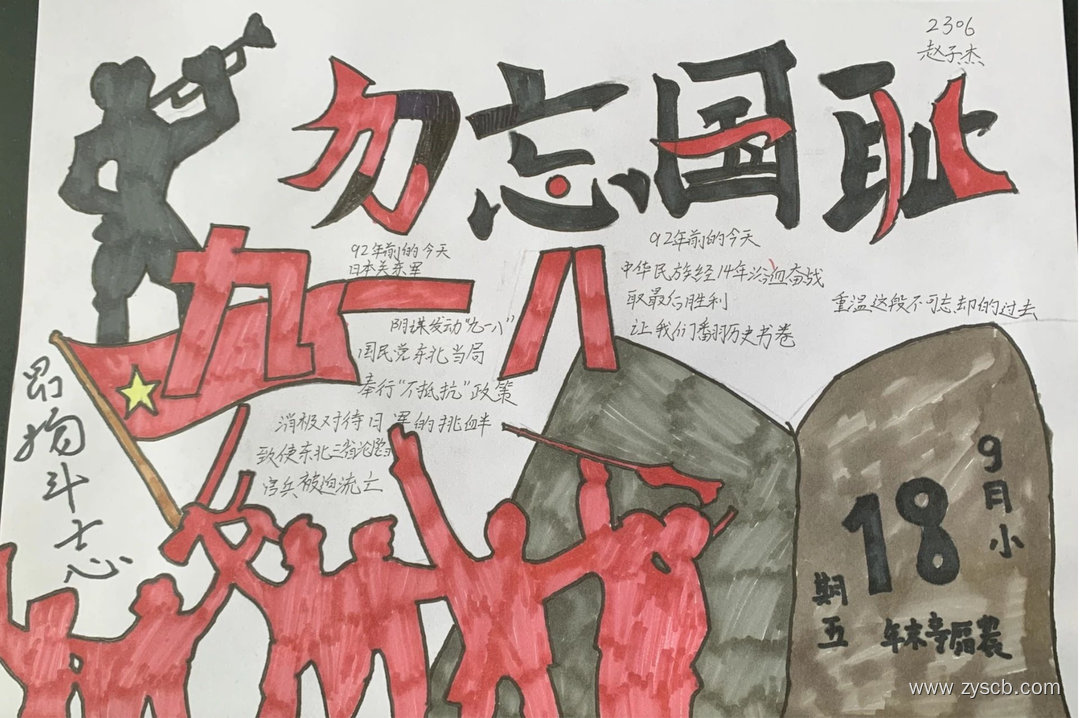 2306
赵子杰
勿忘国耻
九一八
92年前的今天
日本关东军
阴谋发动"九一八"
国民党东北当局
奉行"不抵抗"政策
消极对待日军的挑衅
致使东北三省沦陷
官兵被迫流亡
92年前的今天
中华民族经14年浴血奋战
取最后胜利
让我们翻历史书卷
重温这段不可忘却的过去
昂扬斗志
9月小
18
期五
www.zyscb.com